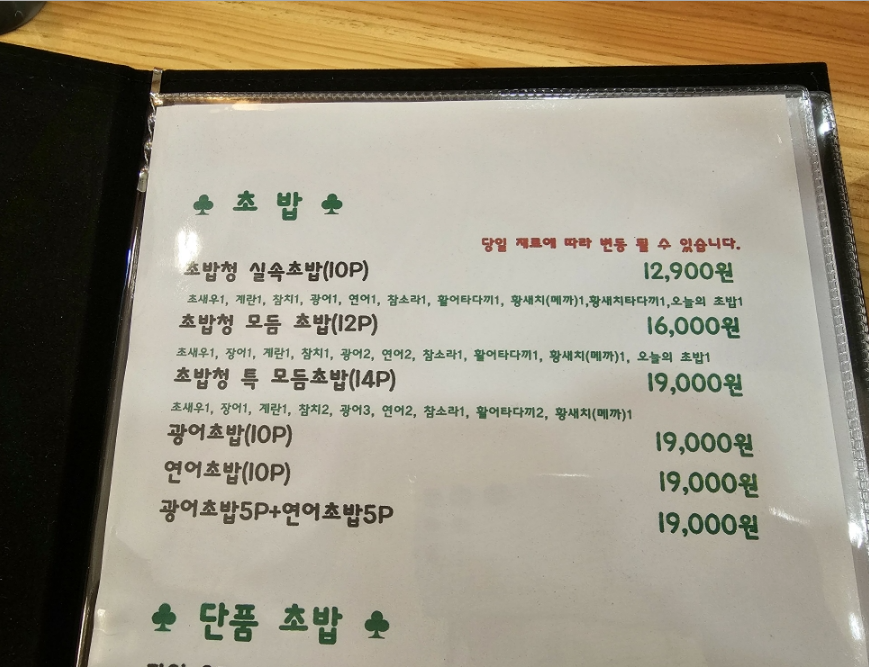 ♣ 초 밥 ♣
당일 재료에 따라 변동 될 수 있습니다.
초밥청 실속초밥(10P) 12,900원
초새우1, 계란1, 참치1, 광어1, 연어1, 참소라1, 활어타다끼1, 황새치(메까)1,황새치타다끼1,오늘의 초밥1
초밥청 모듬 초밥(12P) 16,000원
초새우1, 장어1, 계란1, 참치1, 광어2, 연어2, 참소라1, 활어타다끼1, 황새치(메까)1, 오늘의 초밥1
초밥청 특 모듬초밥(14P) 19,000원
초새우1, 장어1, 계란1, 참치2, 광어3, 연어2, 참소라1, 활어타다끼2, 황새치(메까)1
광어초밥(10P) 19,000원
연어초밥(10P) 19,000원
광어초밥5P+연어초밥5P 19,000원
♣ 단품 초밥 ♣